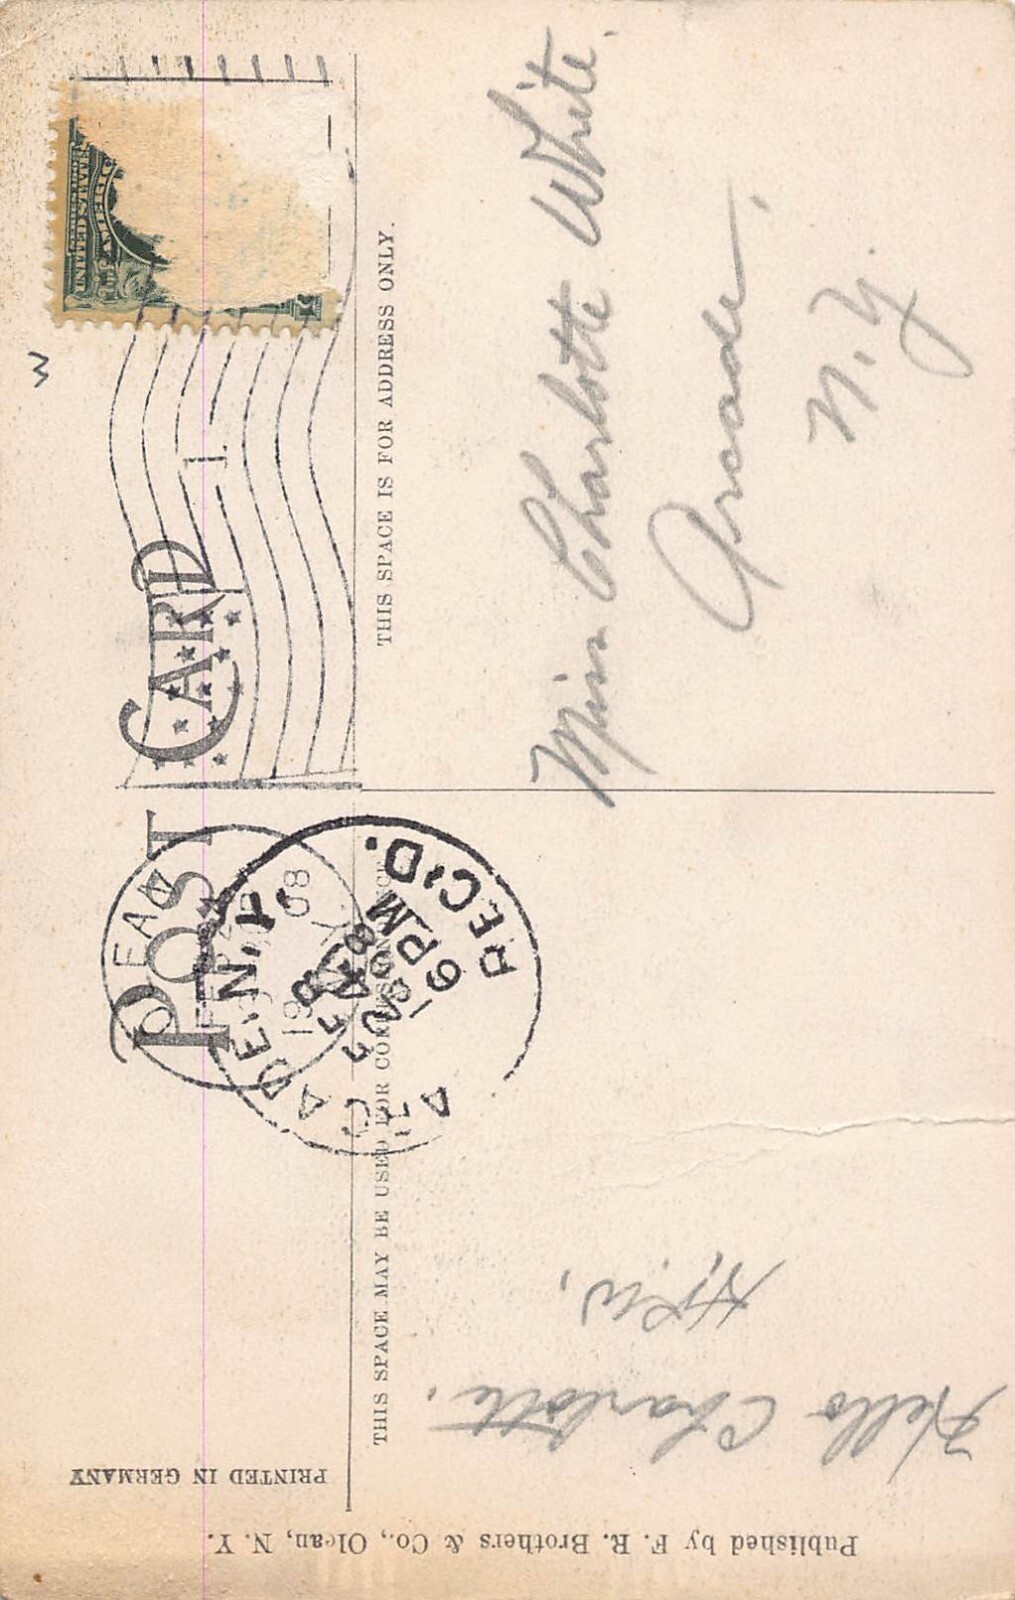 POST CARD
THIS SPACE MAY BE USED FOR CORRESPONDENCE
THIS SPACE IS FOR ADDRESS ONLY.
UNITED STATES
1
OLEAN
N.Y.
1908
ARCADE, N.Y.
FEB
8
6 PM
REC'D.
Hello Charlotte.
Miss Charlotte White.
Arcade,
N.Y.
PRINTED IN GERMANY
Published by F. R. Brothers & Co., Olean, N. Y.